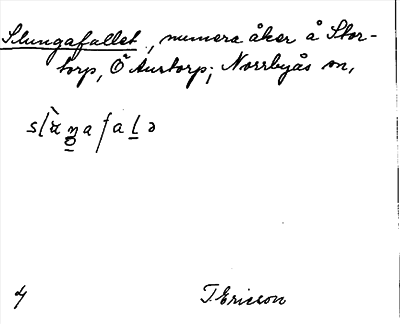 Slungafallet, numera åker å Stor-
torp, Ö Aurtorp; Norrbyås sn,
4
T Ericson